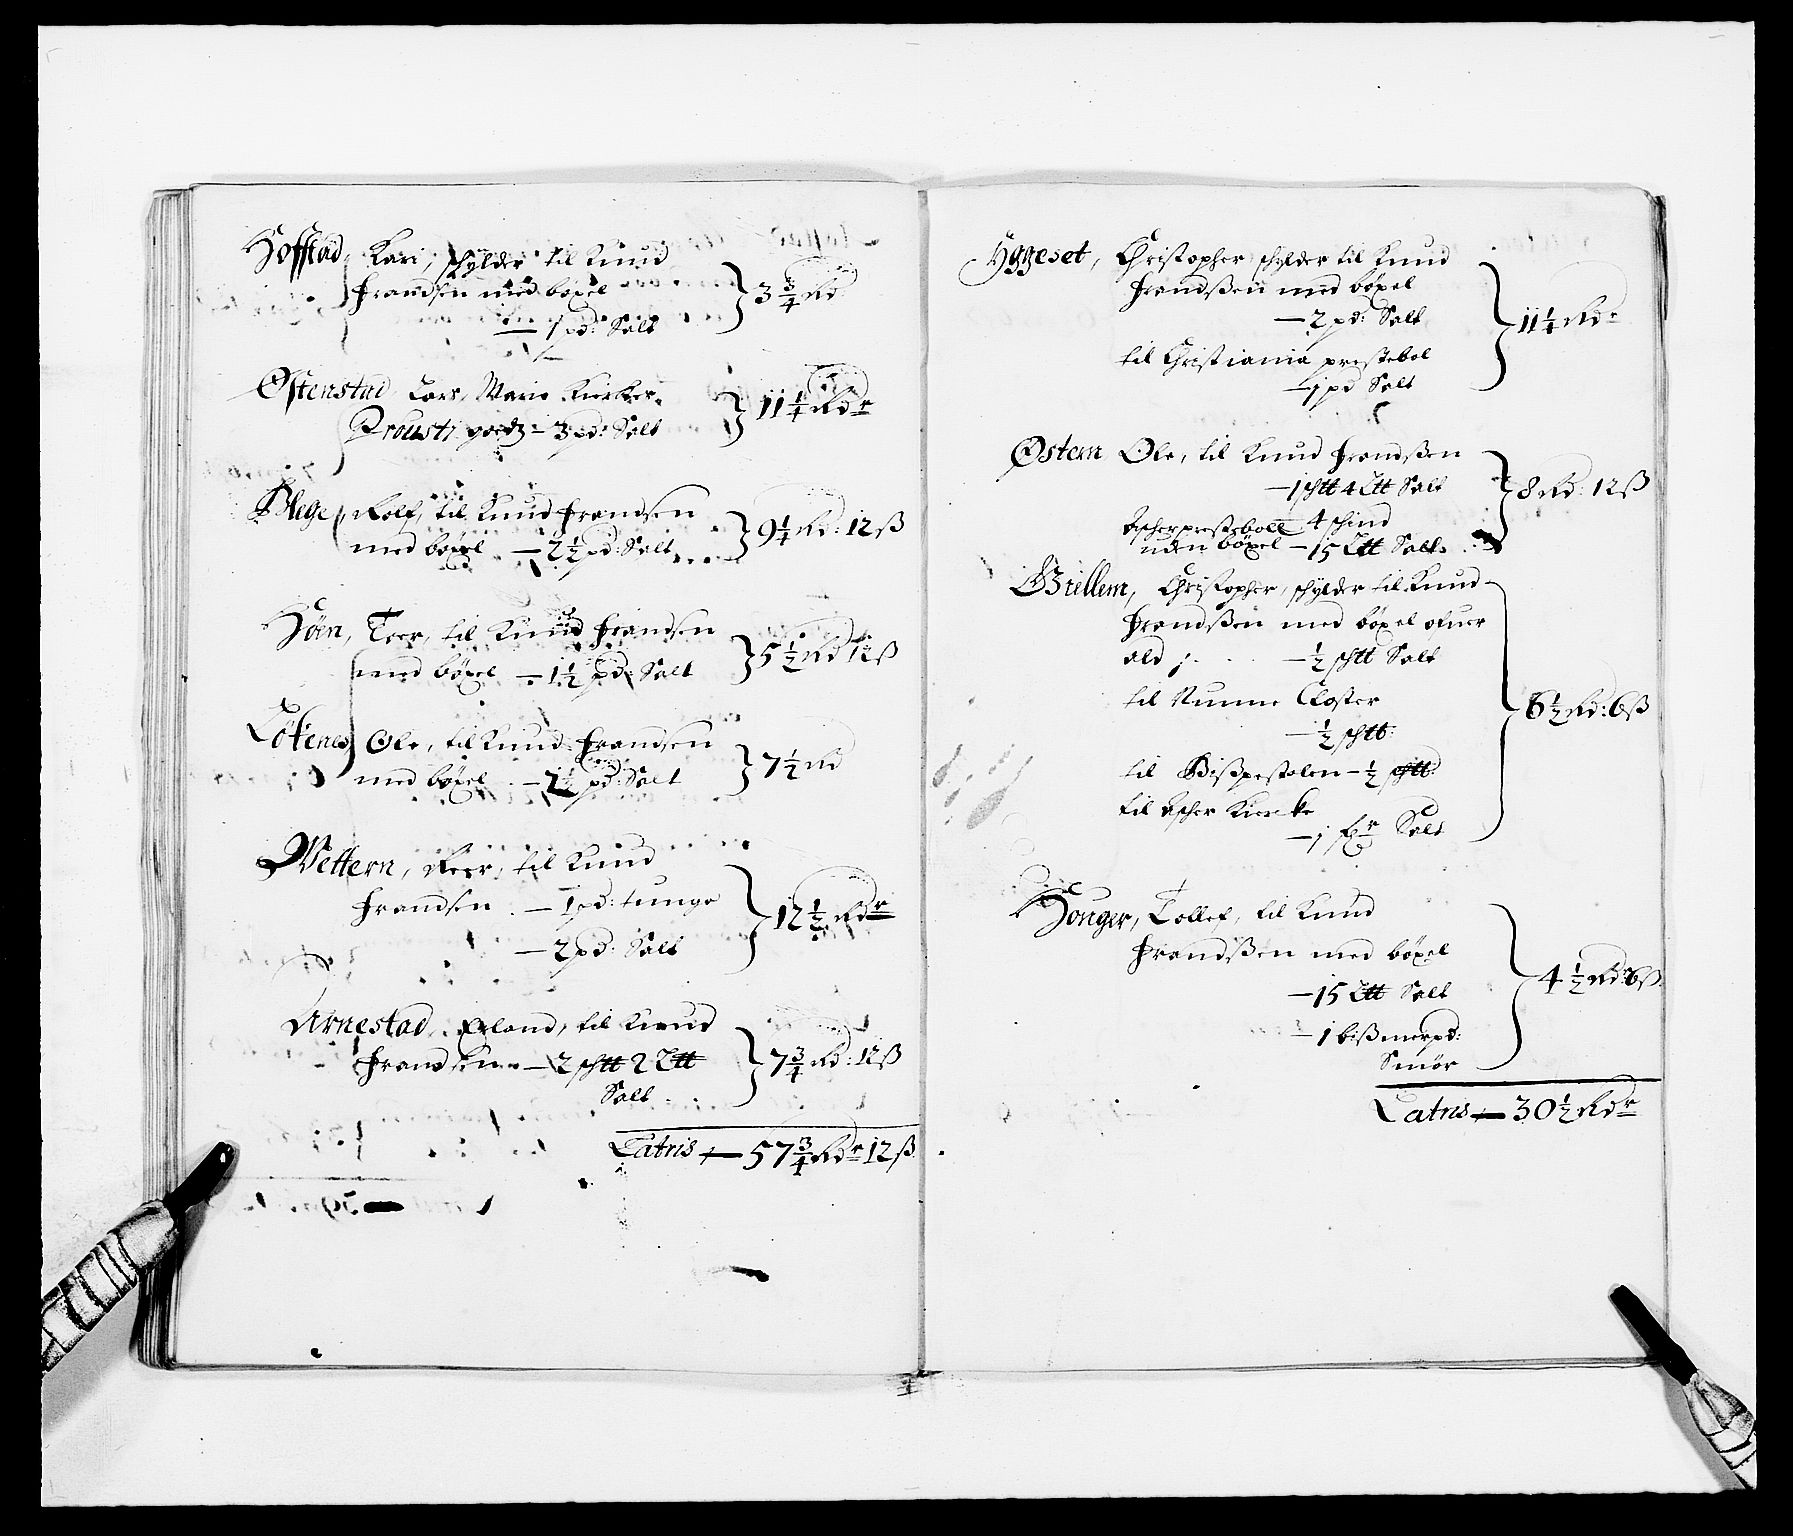 Hofstad, Kari, schylder til Knud
frandsen med böxel
— 1 pd: Salt } 3 3/4 Rd:
Østenstad, Lars, Marie Kierker,
Prousti goedz — 3 pd: Salt } 11 1/4 Rdr
Blege, Rolf, til Knud frandsen
med böxel — 2 1/2 pd: Salt } 9 1/4 Rd: 12 ß
Höen, Toer, til Knud frandsen
med böxel — 1 1/2 pd: Salt } 5 1/2 Rd 12 ß
Lökenes, Ole, til Knud frandsen
med böxel — 2 1/2 pd: Salt } 7 1/2 Rd
Wettern, Peer, til Knud
frandsen — 1 pd: tunge
— 2 pd: Salt } 12 1/2 Rdr
Arnestad, Erland, til Knud
frandsen — 2 schtt 2 Ltt
Salt } 7 3/4 Rd: 12 ß
Latris — 57 3/4 Rdr 12 ß
Hggeset, Christopher schylder til Knud
frandßen med böxel
— 2 pd: Salt
til Christiania prestebol
— 1 pd Salt } 11 1/4 Rdr
Østern Ole, til Knud frandßen
— 1 schtt 4 Ltt Salt
Ascher prestebolle 4 schind
uden böxel — 15 Ltt Salt } 8 Rd: 12 ß
Giellem, Christopher, schylder til Knud
frandßen med böxel ofuer
ald — 1/2 schtt Salt
til Nunne Closter
— 1/2 schtt:
til Bißpestolen — 1/2 schtt:
til Ascher Kiercke
— 1 fr Salt } 6 1/2 Rd: 6 ß
Houger, Tollef, til Knud
frandßen med böxel
— 15 Ltt Salt
— 1 bißmerpd:
Smör } 4 1/2 Rd: 6 ß
Latris — 30 1/2 Rdr